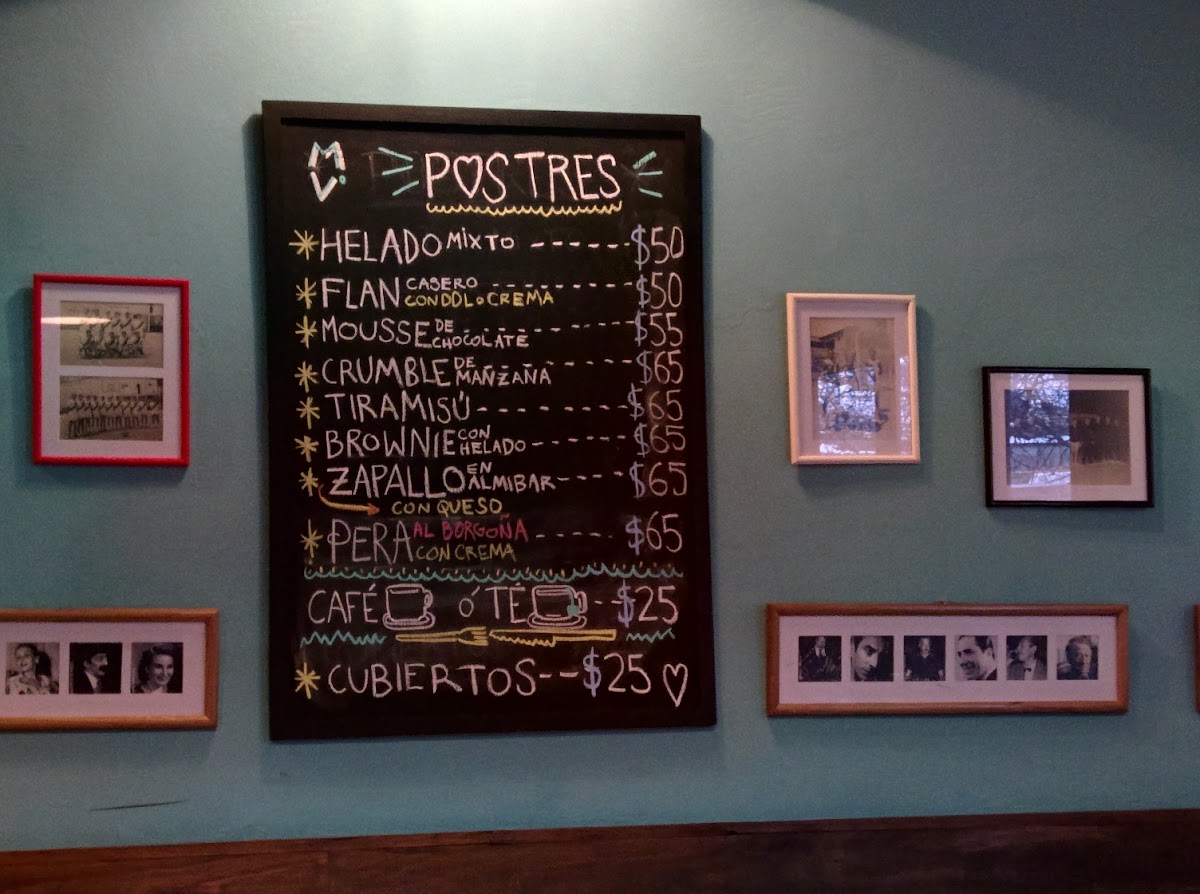 MV.
POSTRES
HELADO MIXTO ------ $50
FLAN CASERO CON DDL o CREMA ------ $50
MOUSSE DE CHOCOLATE ------ $55
CRUMBLE DE MANZANA ------ $65
TIRAMISÚ ------ $65
BROWNIE CON HELADO ----- $65
ZAPALLO EN ALMIBAR --- $65
CON QUESO
PERA AL BORGOÑA CON CREMA ----- $65
CAFÉ ó TÉ -- $25
CUBIERTOS -- $25